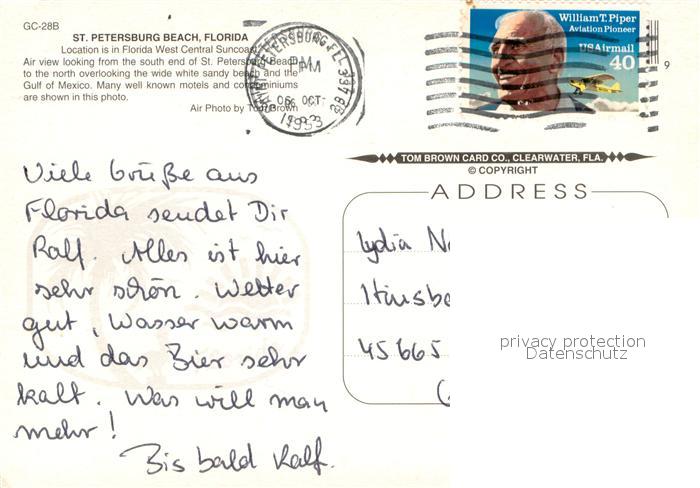 GC-28B
ST. PETERSBURG BEACH, FLORIDA
Location is in Florida West Central Suncoast.
Air view looking from the south end of St. Petersburg Beach
to the north overlooking the wide white sandy beach and the
Gulf of Mexico. Many well known motels and condominiums
are shown in this photo.
Air Photo by Tom Brown
PETERSBURG, FL
PM
06 OCT
1993
William T. Piper
Aviation Pioneer
US Airmail
40
9
TOM BROWN CARD CO., CLEARWATER, FLA.
© COPYRIGHT
ADDRESS
Viele Grüße aus
Florida sendet Dir
Ralf. Alles ist hier
sehr schön. Wetter
gut, Wasser warm
und das Bier sehr
kalt. Was will man
mehr!
Bis bald Ralf.
Lydia
45665
privacy protection
Datenschutz